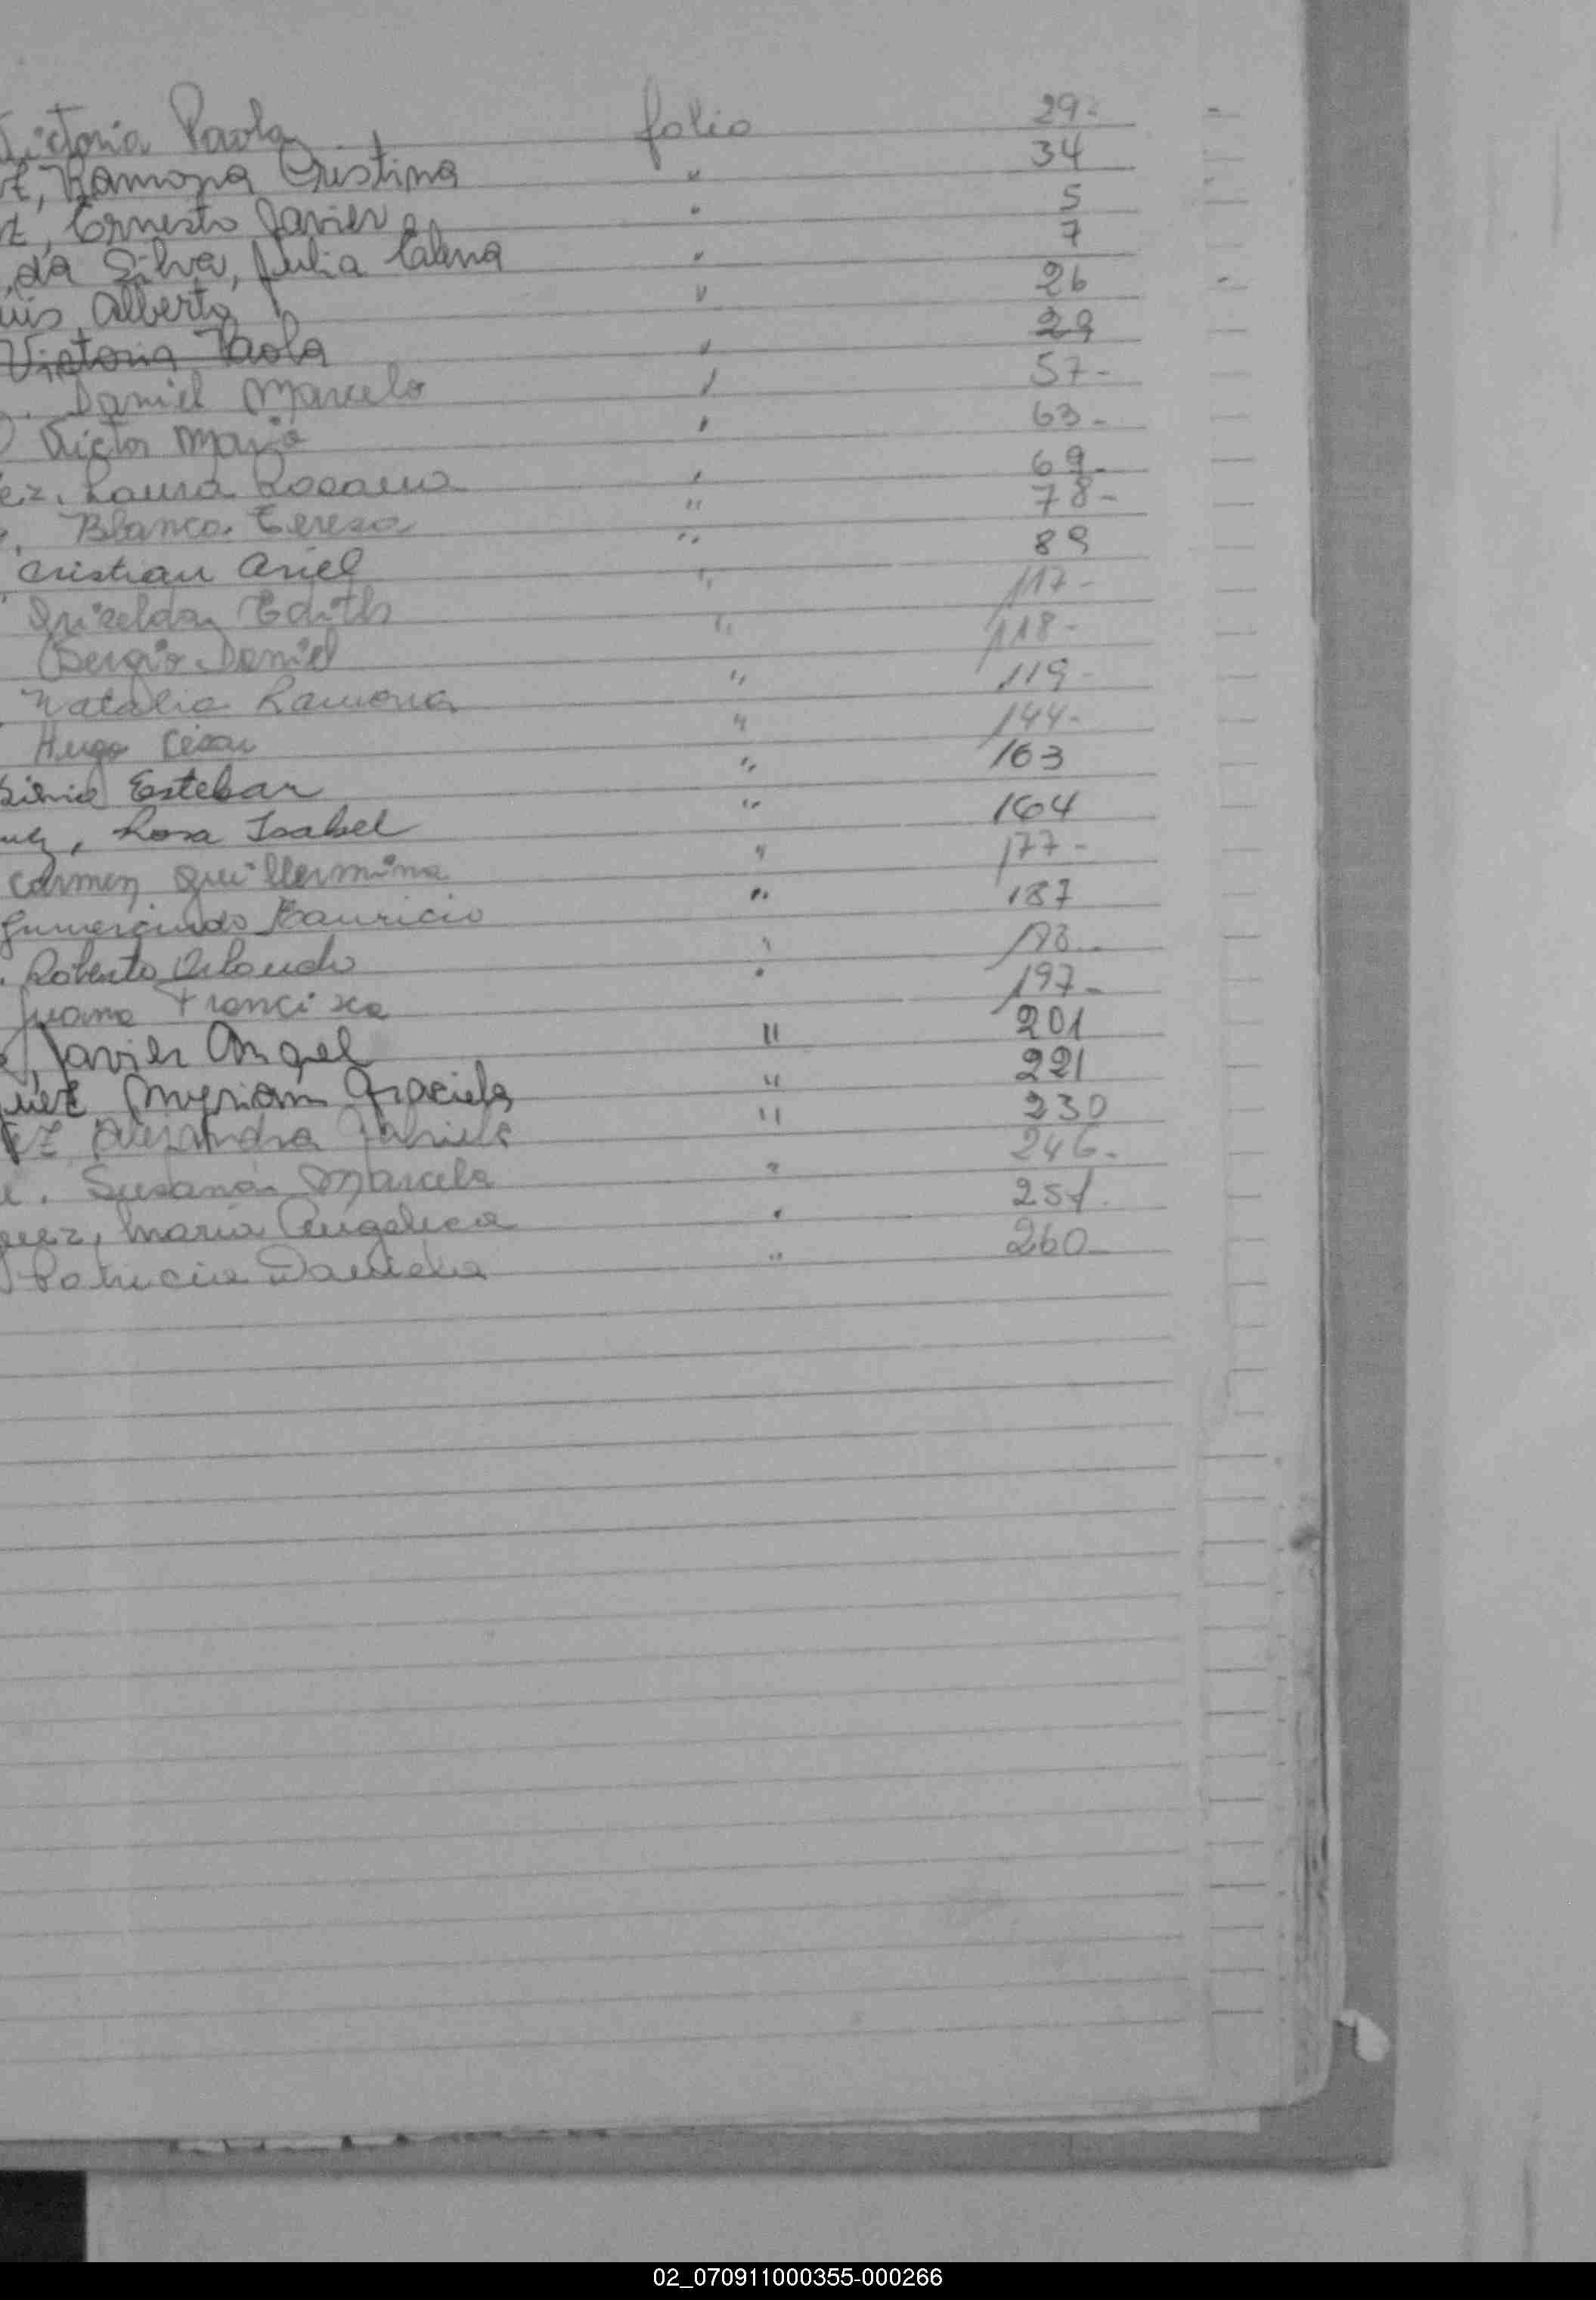 Victoria Paola folio 29-
z, Ramona Cristina " 34
z, Ernesto Javier " 5
, da Silva, Julia Elena " 7
uis Alberto " 26
Victoria Paola " 29
. Daniel Marcelo " 57-
Victor Mario " 63-
ez, Laura Rosana " 69-
, Blanca Teresa " 78-
Cristian Ariel " 89
Griselda Edith " 117-
Sergio Daniel " 118-
Natalia Ramona " 119-
Hugo César " 144-
Esteban " 163
, Rosa Isabel " 164
Carmen Guillermina " 177-
Gumercindo Mauricio " 187
. Roberto Orlando "
Juana Francisca " 197-
, Javier Angel " 201
uez Myriam Graciela " 221
ez Alejandra Gabriela " 230
. Susana Marcela " 246-
uez, Maria Angelica " 251.
Patricia Daniela " 260-
02_070911000355-000266